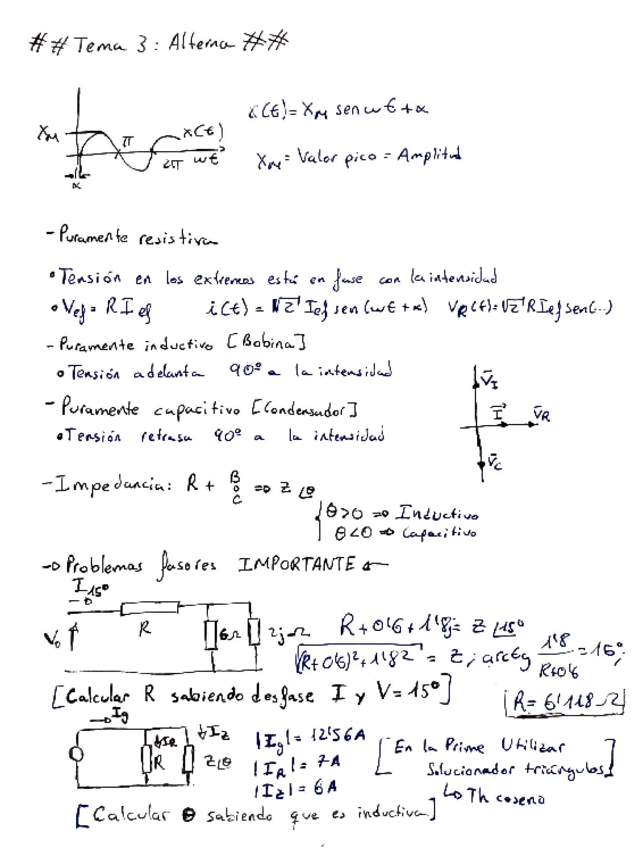 ## Tema 3: Alterna ##
x(t) = X_M sen ωt + α
X_M
x(t)
π
2π
ωt
α
X_M = Valor pico = Amplitud
- Puramente resistiva
• Tensión en los extremos está en fase con la intensidad
• Vef = R Ief   i(t) = √2 Ief sen(ωt + α)   V_R(t) = √2 R Ief sen(...)
- Puramente inductivo [Bobina]
• Tensión adelanta 90º a la intensidad
- Puramente capacitivo [Condensador]
• Tensión retrasa 90º a la intensidad
V_I
I
V_R
V_C
- Impedancia: R + B o C => Z∠θ
θ>0 => Inductivo
θ<0 => Capacitivo
-> Problemas fasores IMPORTANTE <-
I∠15º
V₀
R
6Ω
2j Ω
R + 0'6 + 1'8j = Z∠15º
√(R+0'6)² + 1'8² = Z; arctg 1'8/R+0'6 = 15º;
[Calcular R sabiendo desfase I y V = 15º]
R = 6'118 Ω
Ig
I_R
I_Z
R
Z∠θ
|Ig| = 12'56A
|I_R| = 7A
|I_Z| = 6A
[En la Prime Utilizar
Solucionador triángulos]
↳ Th coseno
[Calcular θ sabiendo que es inductiva]